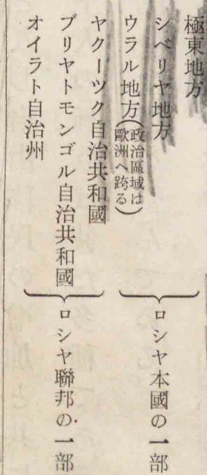 極東地方
シベリヤ地方
ウラル地方(政治區域は歐洲へ跨る)
ロシヤ本國の一部
ヤクーツク自治共和國
ブリヤトモンゴル自治共和國
オイラト自治州
ロシヤ聯邦の一部